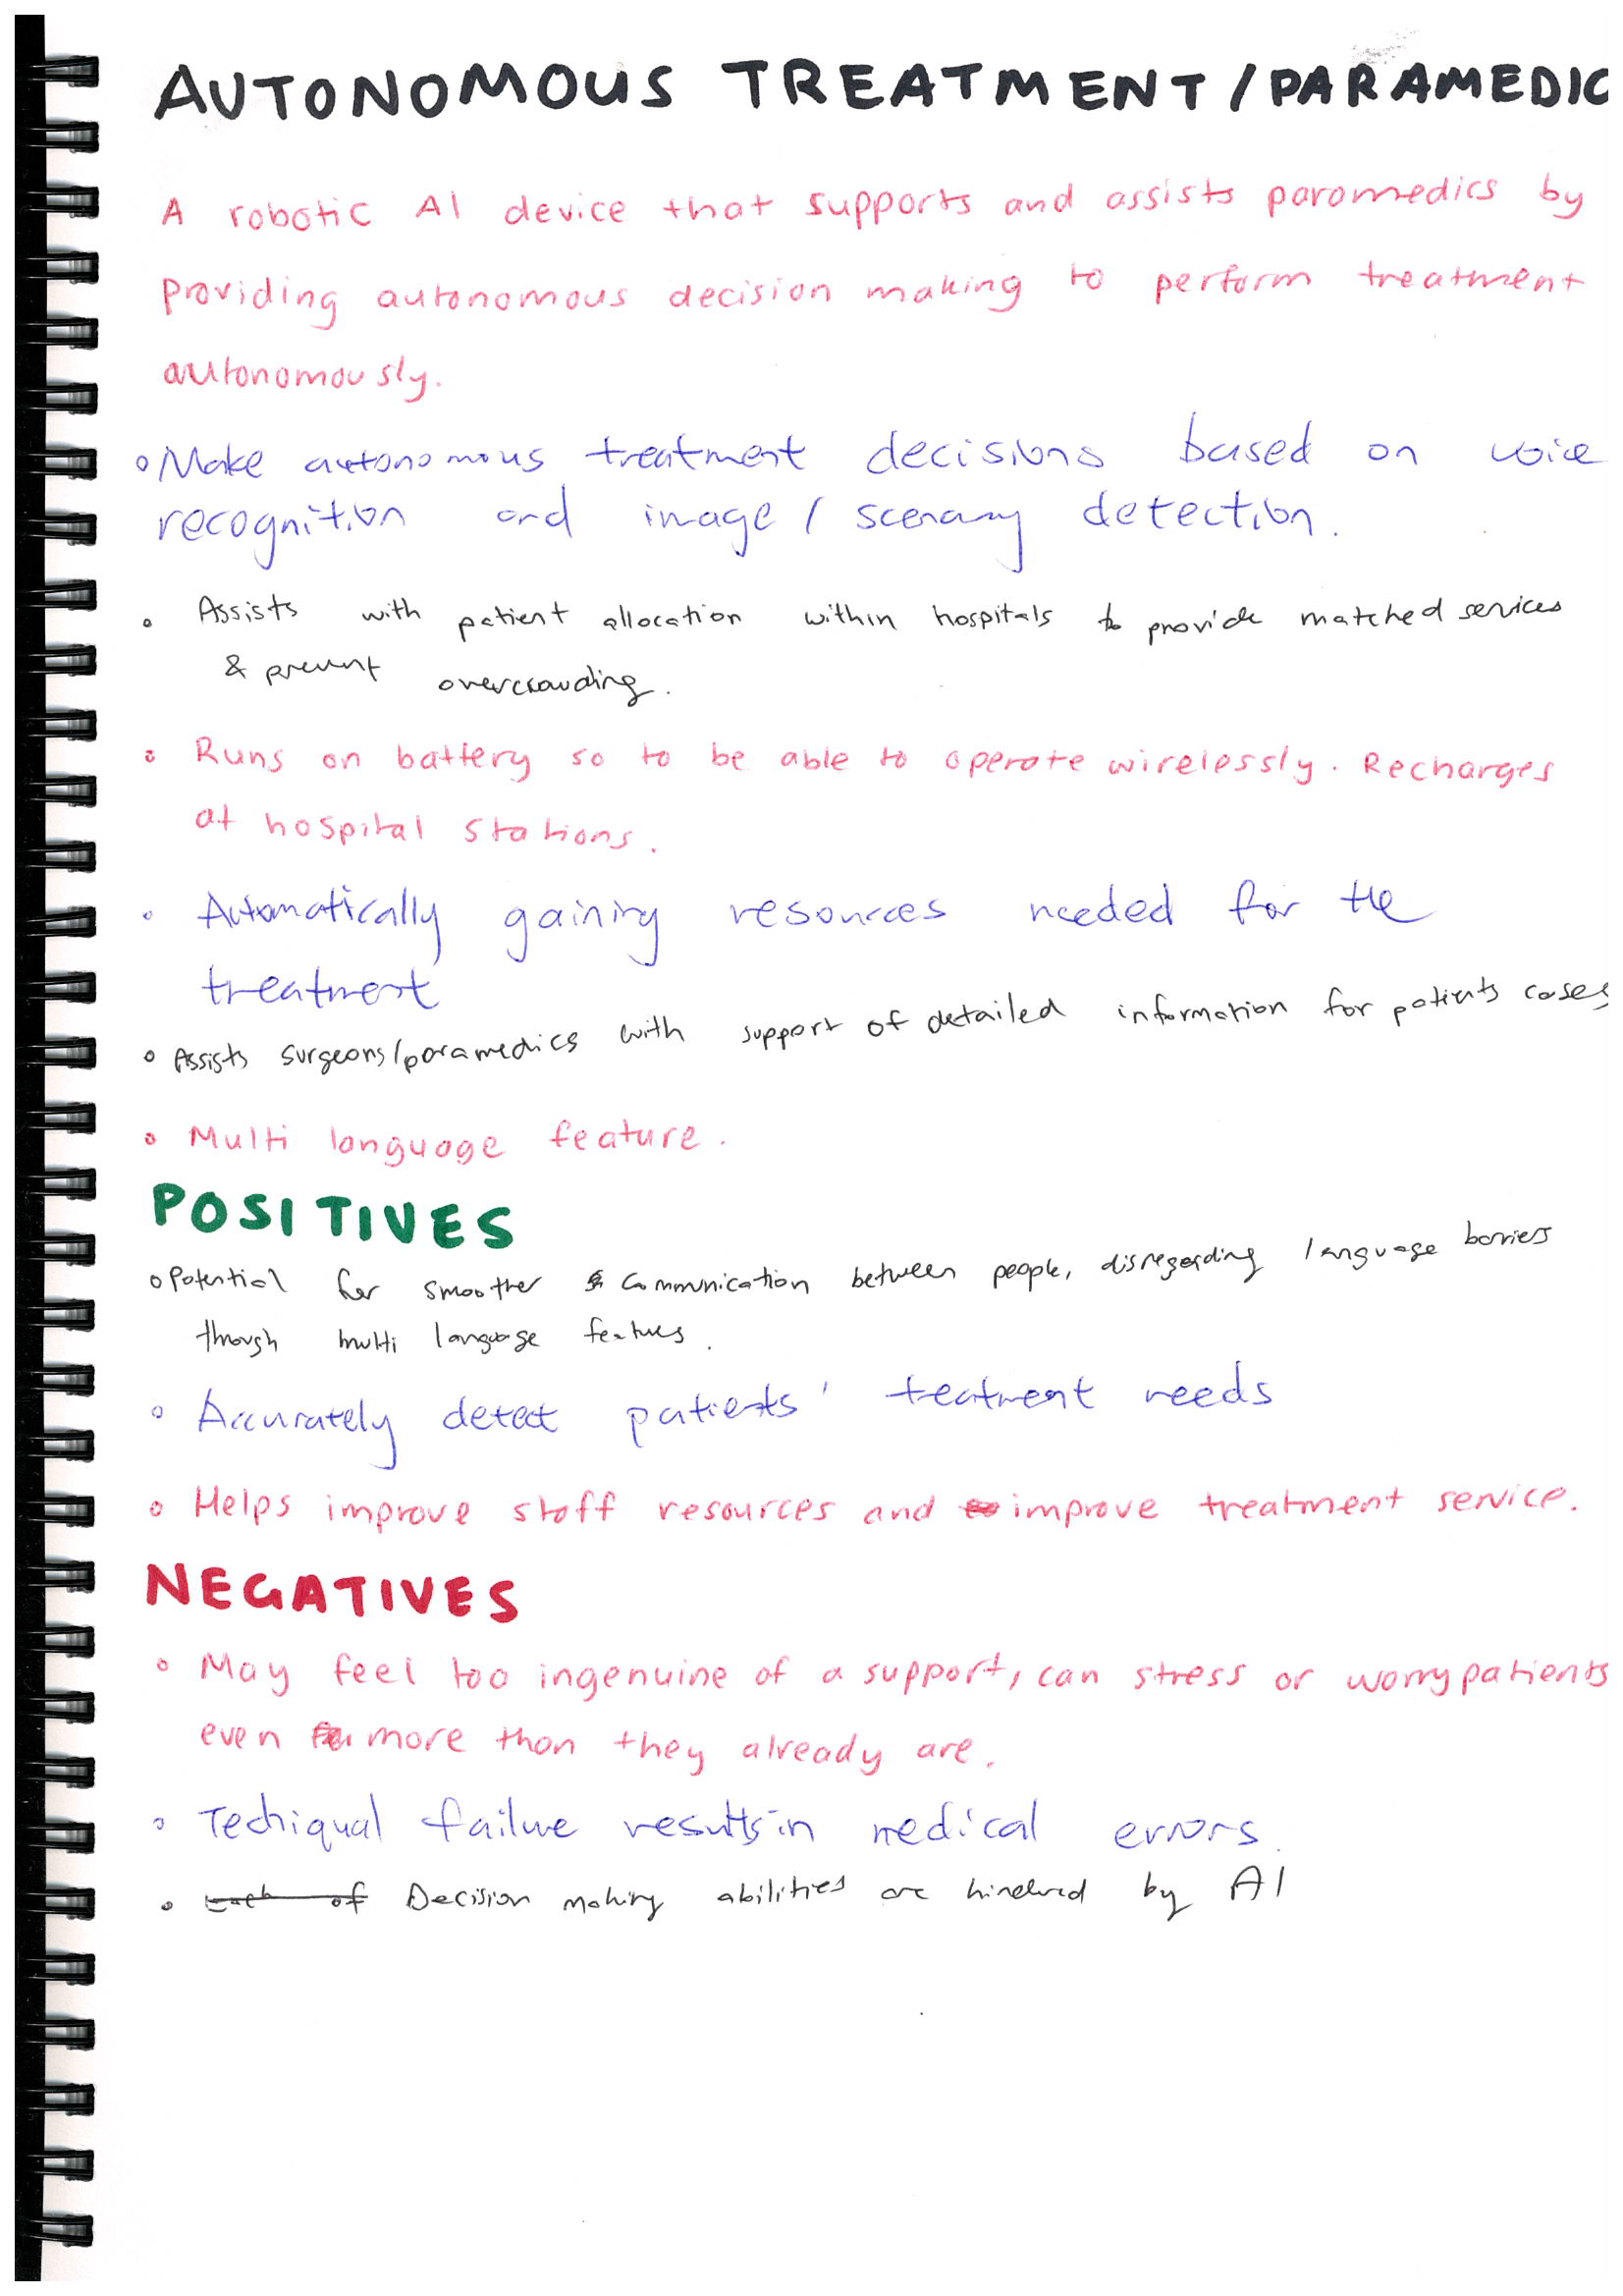 AUTONOMOUS TREATMENT/PARAMEDIC
A robotic AI device that supports and assists paramedics by
providing autonomous decision making to perform treatment
autonomously.
Make autonomous treatment decisions based on voice
recognition and image / scenary detection.
Assists with patient allocation within hospitals to provide matched services
& prevent overcrowding.
Runs on battery so to be able to operate wirelessly. Recharges
at hospital stations.
Automatically gaining resources needed for the
treatment
Assists surgeons/paramedics with support of detailed information for patients cases
Multi language feature.
POSITIVES
Potential for smoother communication between people, disregarding language barriers
through multi language features.
Accurately detect patients' treatment needs
Helps improve staff resources and improve treatment service.
NEGATIVES
May feel too ingenuine of a support, can stress or worry patients
even more than they already are.
Techiqual failure results in medical errors.
Decision making abilities are hindered by AI